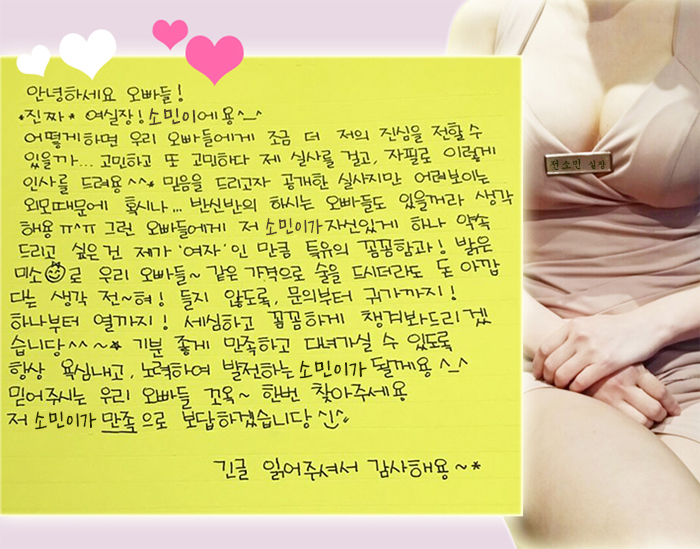 안녕하세요 오빠들!
*진짜* 여실장! 소민이에용^-^
어떻게하면 우리 오빠들에게 조금 더 저의 진심을 전할수
있을까... 고민하고 또 고민하다 제 실사를 걸고, 자필로 이렇게
인사를 드려용^^* 믿음을 드리고자 공개한 실사지만 어려보이는
외모때문에 혹시나... 반신반의 하시는 오빠들도 있을꺼라 생각
해용 ㅠ^ㅠ 그런 오빠들에게 저 소민이가 자신있게 하나 약속
드리고 싶은건 제가 '여자' 인 만큼 특유의 꼼꼼함과! 밝은
미소로 우리 오빠들~ 같은 가격으로 술을 드시더라도 돈 아깝
다는 생각 전~혀! 들지 않도록, 문의부터 귀가까지!
하나부터 열까지! 세심하고 꼼꼼하게 챙겨봐드리겠
습니당^^~* 기분 좋게 만족하고 대녀가실 수 있도록
항상 욕심내고, 노력하여 발전하는 소민이가 될게용^-^
믿어주시는 우리 오빠들 꼬옥~ 한번 찾아주세용
저 소민이가 만족으로 보답하겠습니당
긴글 읽어주셔서 감사해용~*
전소민 실장